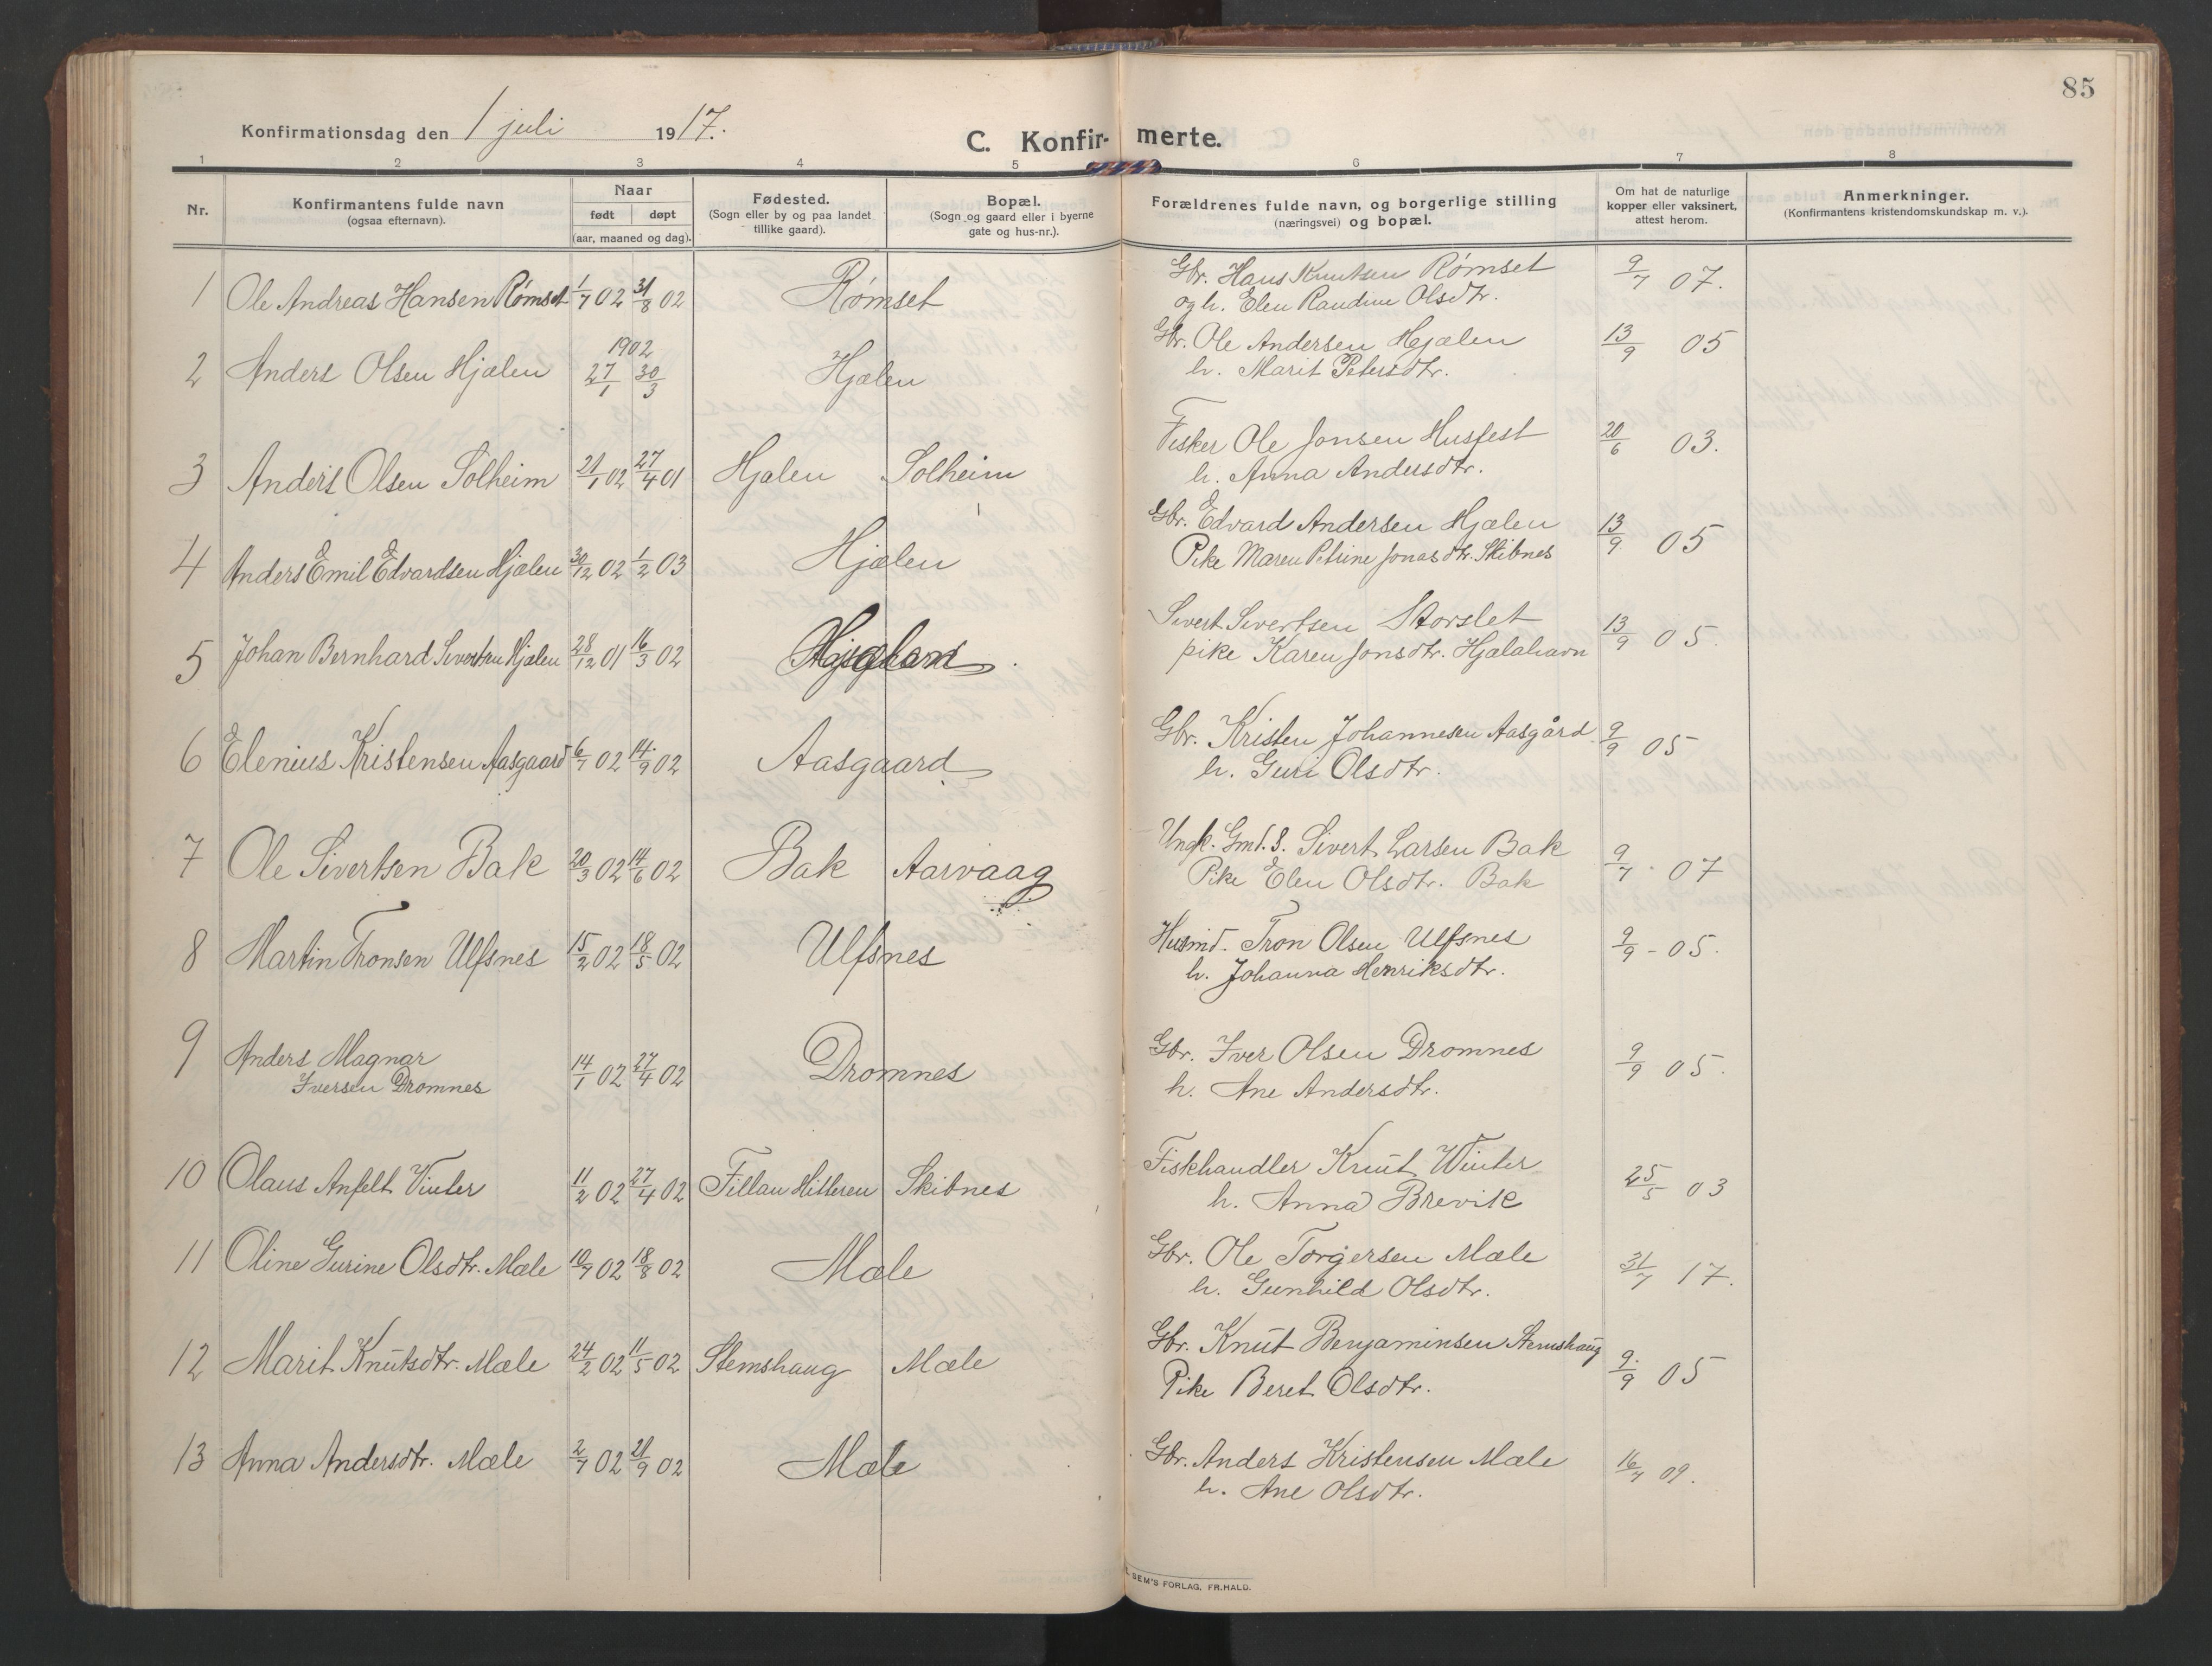 85
Konfirmationsdag den 1 juli 1917.
C. Konfir- merte.
1 2 3 4 5 6 7 8
Nr.
Konfirmantens fulde navn
(ogsaa efternavn).
Naar
født døpt
(aar, maaned og dag).
Fødested.
(Sogn eller by og paa landet
tillike gaard).
Bopæl.
(Sogn og gaard eller i byerne
gate og hus-nr.).
Forældrenes fulde navn, og borgerlige stilling
(næringsvei) og bopæl.
Om hat de naturlige
kopper eller vaksinert,
attest herom.
Anmerkninger.
(Konfirmantens kristendomskundskap m. v.).
1 Ole Andreas Hansen Rømset 1/7 02 31/8 02 Rømset Gbr. Hans Knutsen Rømset 9/7 07.
og h. Elen Raudine Olsdtr.
2 Anders Olsen Hjælen 1902 27/1 30/3 Hjælen Gbr. Ole Andersen Hjælen 13/9 05
h. Marit Petersdtr.
3 Anders Olsen Solheim 21/1 02 27/4 01 Hjælen Solheim Fisker Ole Jonsen Husfest 20/6 03.
h. Anna Andersdtr.
4 Anders Emil Edvardsen Hjælen 30/12 02 1/2 03 Hjælen Gbr. Edvard Andersen Hjælen 13/9 05
Pike Maren Petrine Jonasdtr. Skibnes
5 Johan Bernhard Sivertsen Hjælen 28/12 01 16/3 02 Sivert Sivertsen Storslet 13/9 05.
pike Karen Jonsdtr. Hjælahavn
6 Elenius Kristensen Aasgaard 6/7 02 14/9 02 Aasgaard Gbr. Kristen Johannesen Aasgård 9/9 05
h. Guri Olsdtr.
7 Ole Sivertsen Bak 20/3 02 14/6 02 Bak Aarvaag Ungk. Gmd. S. Sivert Larsen Bak 9/7 07
Pike Elen Olsdtr. Bak
8 Martin Tronsen Ulfsnes 15/2 02 18/5 02 Ulfsnes Husmd. Tron Olsen Ulfsnes 9/9 - 05.
h. Johanna Henriksdtr.
9 Anders Magnar
Iversen Dromnes 14/1 02 27/4 02 Dromnes Gbr. Iver Olsen Dromnes 9/9 05.
h. Ane Andersdtr.
10 Olaus Anfelt Vinter 11/2 02 27/4 02 Fillan Hitteren Skibnes Fiskhandler Knut Winter 25/5 03
h. Anna Brevik
11 Oline Gurine Olsdtr. Mæle 10/7 02 18/8 02 Mæle Gbr. Ole Torgersen Mæle 31/7 17.
h. Gunhild Olsdtr.
12 Marit Knutsdtr. Mæle 24/2 02 11/5 02 Stemshaug Mæle Gbr. Knut Benjaminsen Stemshaug 9/9 05
Pike Beret Olsdtr.
13 Anna Andersdtr. Mæle 2/7 02 21/9 02 Mæle Gbr. Anders Kristensen Mæle 16/7 09.
h. Ane Olsdtr.
SEM'S FORLAG, FR.HALD.